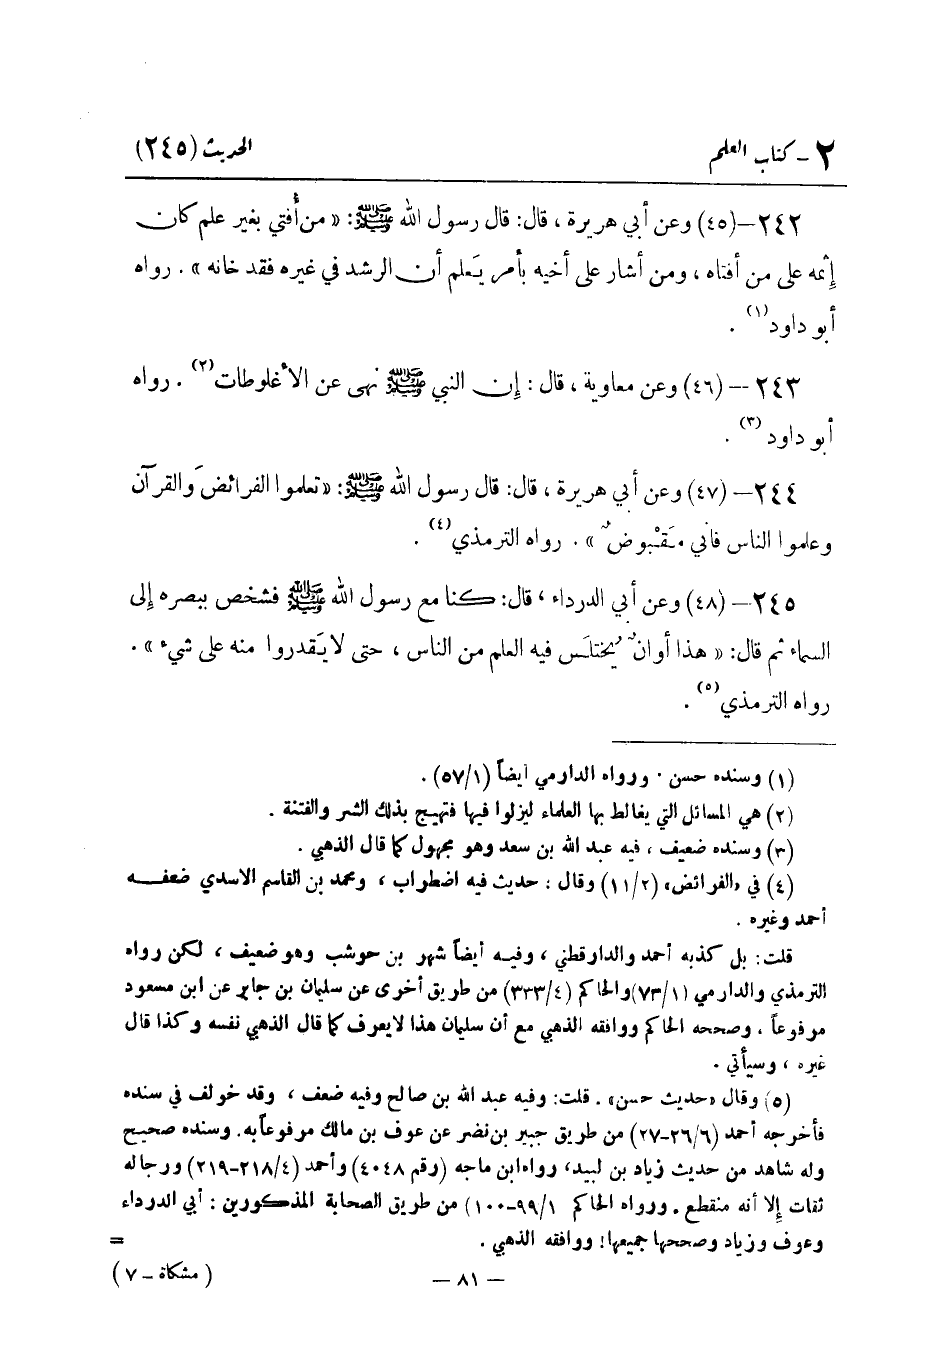 ٢ - كتاب العلم الحديث (٢٤٥)
٢٤٢–(٤٥) وعن أبي هريرة ، قال: قال رسول الله ﷺ: « من أُفتي بغير علم كان
إثمه على من أفتاه ، ومن أشار على أخيه بأمر يَعلم أن الرشد في غيره فقد خانه » . رواه
أبو داود (١) .
٢٤٣ – (٤٦) وعن معاوية ، قال : إن النبي ﷺ نهى عن الأغلوطات (٢) . رواه
أبو داود (٣) .
٢٤٤– (٤٧) وعن أبي هريرة ، قال: قال رسول الله ﷺ: «تعلموا الفرائضَ والقرآن
وعلموا الناس فأني مَقْبُوضٌ » . رواه الترمذي (٤) .
٢٤٥– (٤٨) وعن أبي الدرداء ، قال: كنا مع رسول الله ﷺ فشخص ببصره إلى
السماء ثم قال: « هذا أوانٌ يُختلَس فيه العلم من الناس ، حتى لا يَقدروا منه على شيء » .
رواه الترمذي (٥) .
(١) وسنده حسن . ورواه الدارمي أيضاً (٥٧/١) .
(٢) هي المسائل التي يغالط بها العلماء ليزلوا فيها فتهيج بذلك الشر والفتنة .
(٣) وسنده ضعيف ، فيه عبد الله بن سعد وهو مجهول كما قال الذهبي .
(٤) في «الفرائض» (١١/٢) وقال : حديث فيه اضطراب ، ومحمد بن القاسم الأسدي ضعفه
أحمد وغيره .
قلت: بل كذبه أحمد والدارقطني ، وفيه أيضاً شهر بن حوشب وهو ضعيف ، لكن رواه
الترمذي والدارمي (٧٣/١) والحاكم (٣٣٣/٤) من طريق أخرى عن سليمان بن جابر عن ابن مسعود
مرفوعاً ، وصححه الحاكم ووافقه الذهبي مع أن سليمان هذا لا يعرف كما قال الذهبي نفسه وكذا قال
غيره ، وسيأتي .
(٥) وقال «حديث حسن» . قلت: وفيه عبد الله بن صالح وفيه ضعف ، وقد خولف في سنده
فأخرجه أحمد (٢٦/٦-٢٧) من طريق جبير بن نضر عن عوف بن مالك مرفوعاً به. وسنده صحيح
وله شاهد من حديث زياد بن لبيد، رواه ابن ماجه (رقم ٤٠٤٨) وأحمد (٢١٨/٤-٢١٩) ورجاله
ثقات إلا أنه منقطع . ورواه الحاكم ٩٩/١-١٠٠) من طريق الصحابة المذكورين : أبي الدرداء
وعوف وزياد وصححها جميعها! ووافقه الذهبي . =
— ٨١ — ( مشكاة - ٧ )